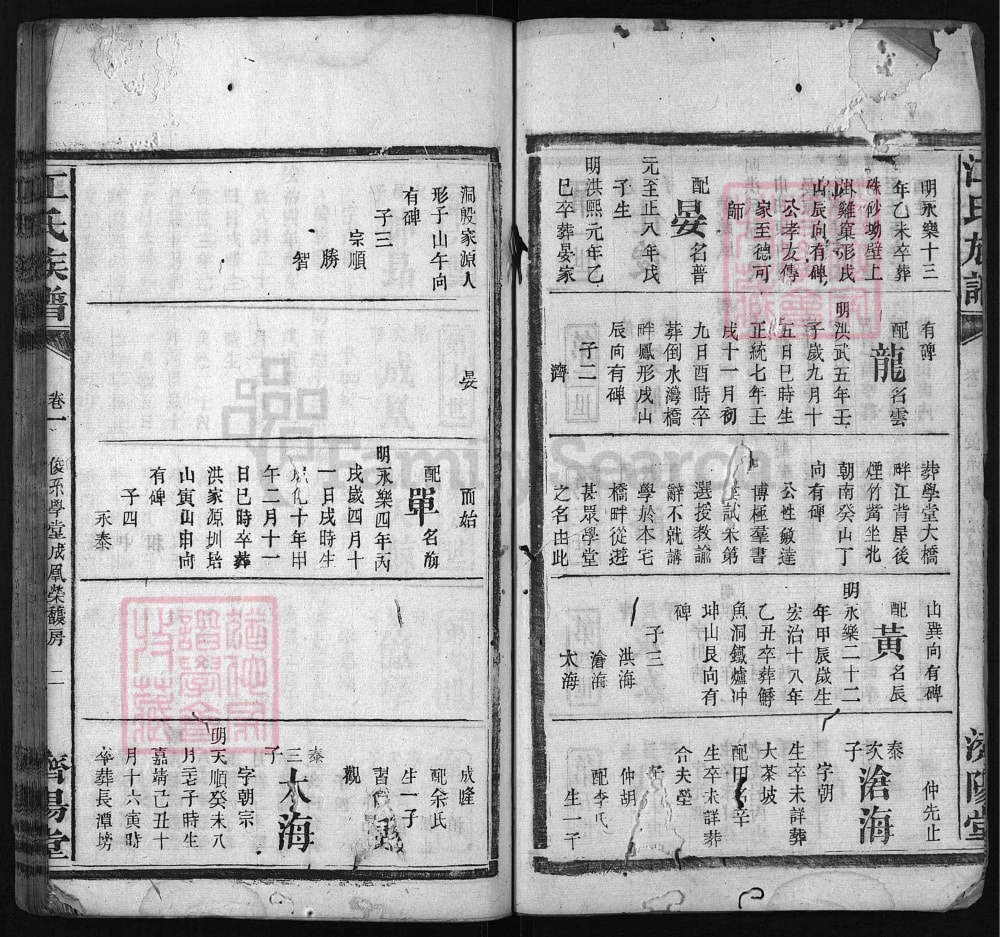 江氏族譜
濟陽堂
明永樂十三
年乙未卒葬
硃砂坳壁上
掛雞窠形民
山辰向有碑
公孝友傳
家至德可
師
配晏名普
元至正八年戊
子生
明洪熙元年乙
巳卒葬晏家
有碑
配龍名雲
明洪武五年壬
子歲九月十
五日巳時生
正統七年壬
戌十一月初
九日酉時卒
葬倒水灣橋
畔鳳形戌山
辰向有碑
子二
濟
葬學堂大橋
畔江背屋後
煙竹嵩坐北
朝南癸山丁
向有碑
公性敏達
博極羣書
試未第
選授教諭
辭不就講
學於本宅
橋畔從遊
甚眾學堂
之名由此
山巽向有碑
配黃名辰
明永樂二十二
年甲辰歲生
宏治十八年
乙丑卒葬鰣
魚洞鐵爐冲
坤山艮向有
碑
子三
洪海
滄海
太海
仲先止
泰次子滄海
字朝
生卒未詳葬
大茶坡
配田名辛
生卒未詳葬
合夫塋
仲胡
配李氏
生一子
洞殷家源人
形子山午向
有碑
子三
宗順
勝
智
晏
而始
配單名海
明永樂四年丙
戌歲四月十
一日戌時生
成化十年甲
午二月十一
日巳時卒葬
洪家源圳培
山寅山申向
有碑
子四
永泰
成隆
配余氏
生一子
習
觀
泰三子太海
字朝宗
明天順癸未八
月廿二子時生
嘉靖己丑十
月十六寅時
卒葬長潭塝
江氏族譜
卷一
俊系學堂成鳳榮馥房
二
濟陽堂
FamilySearch